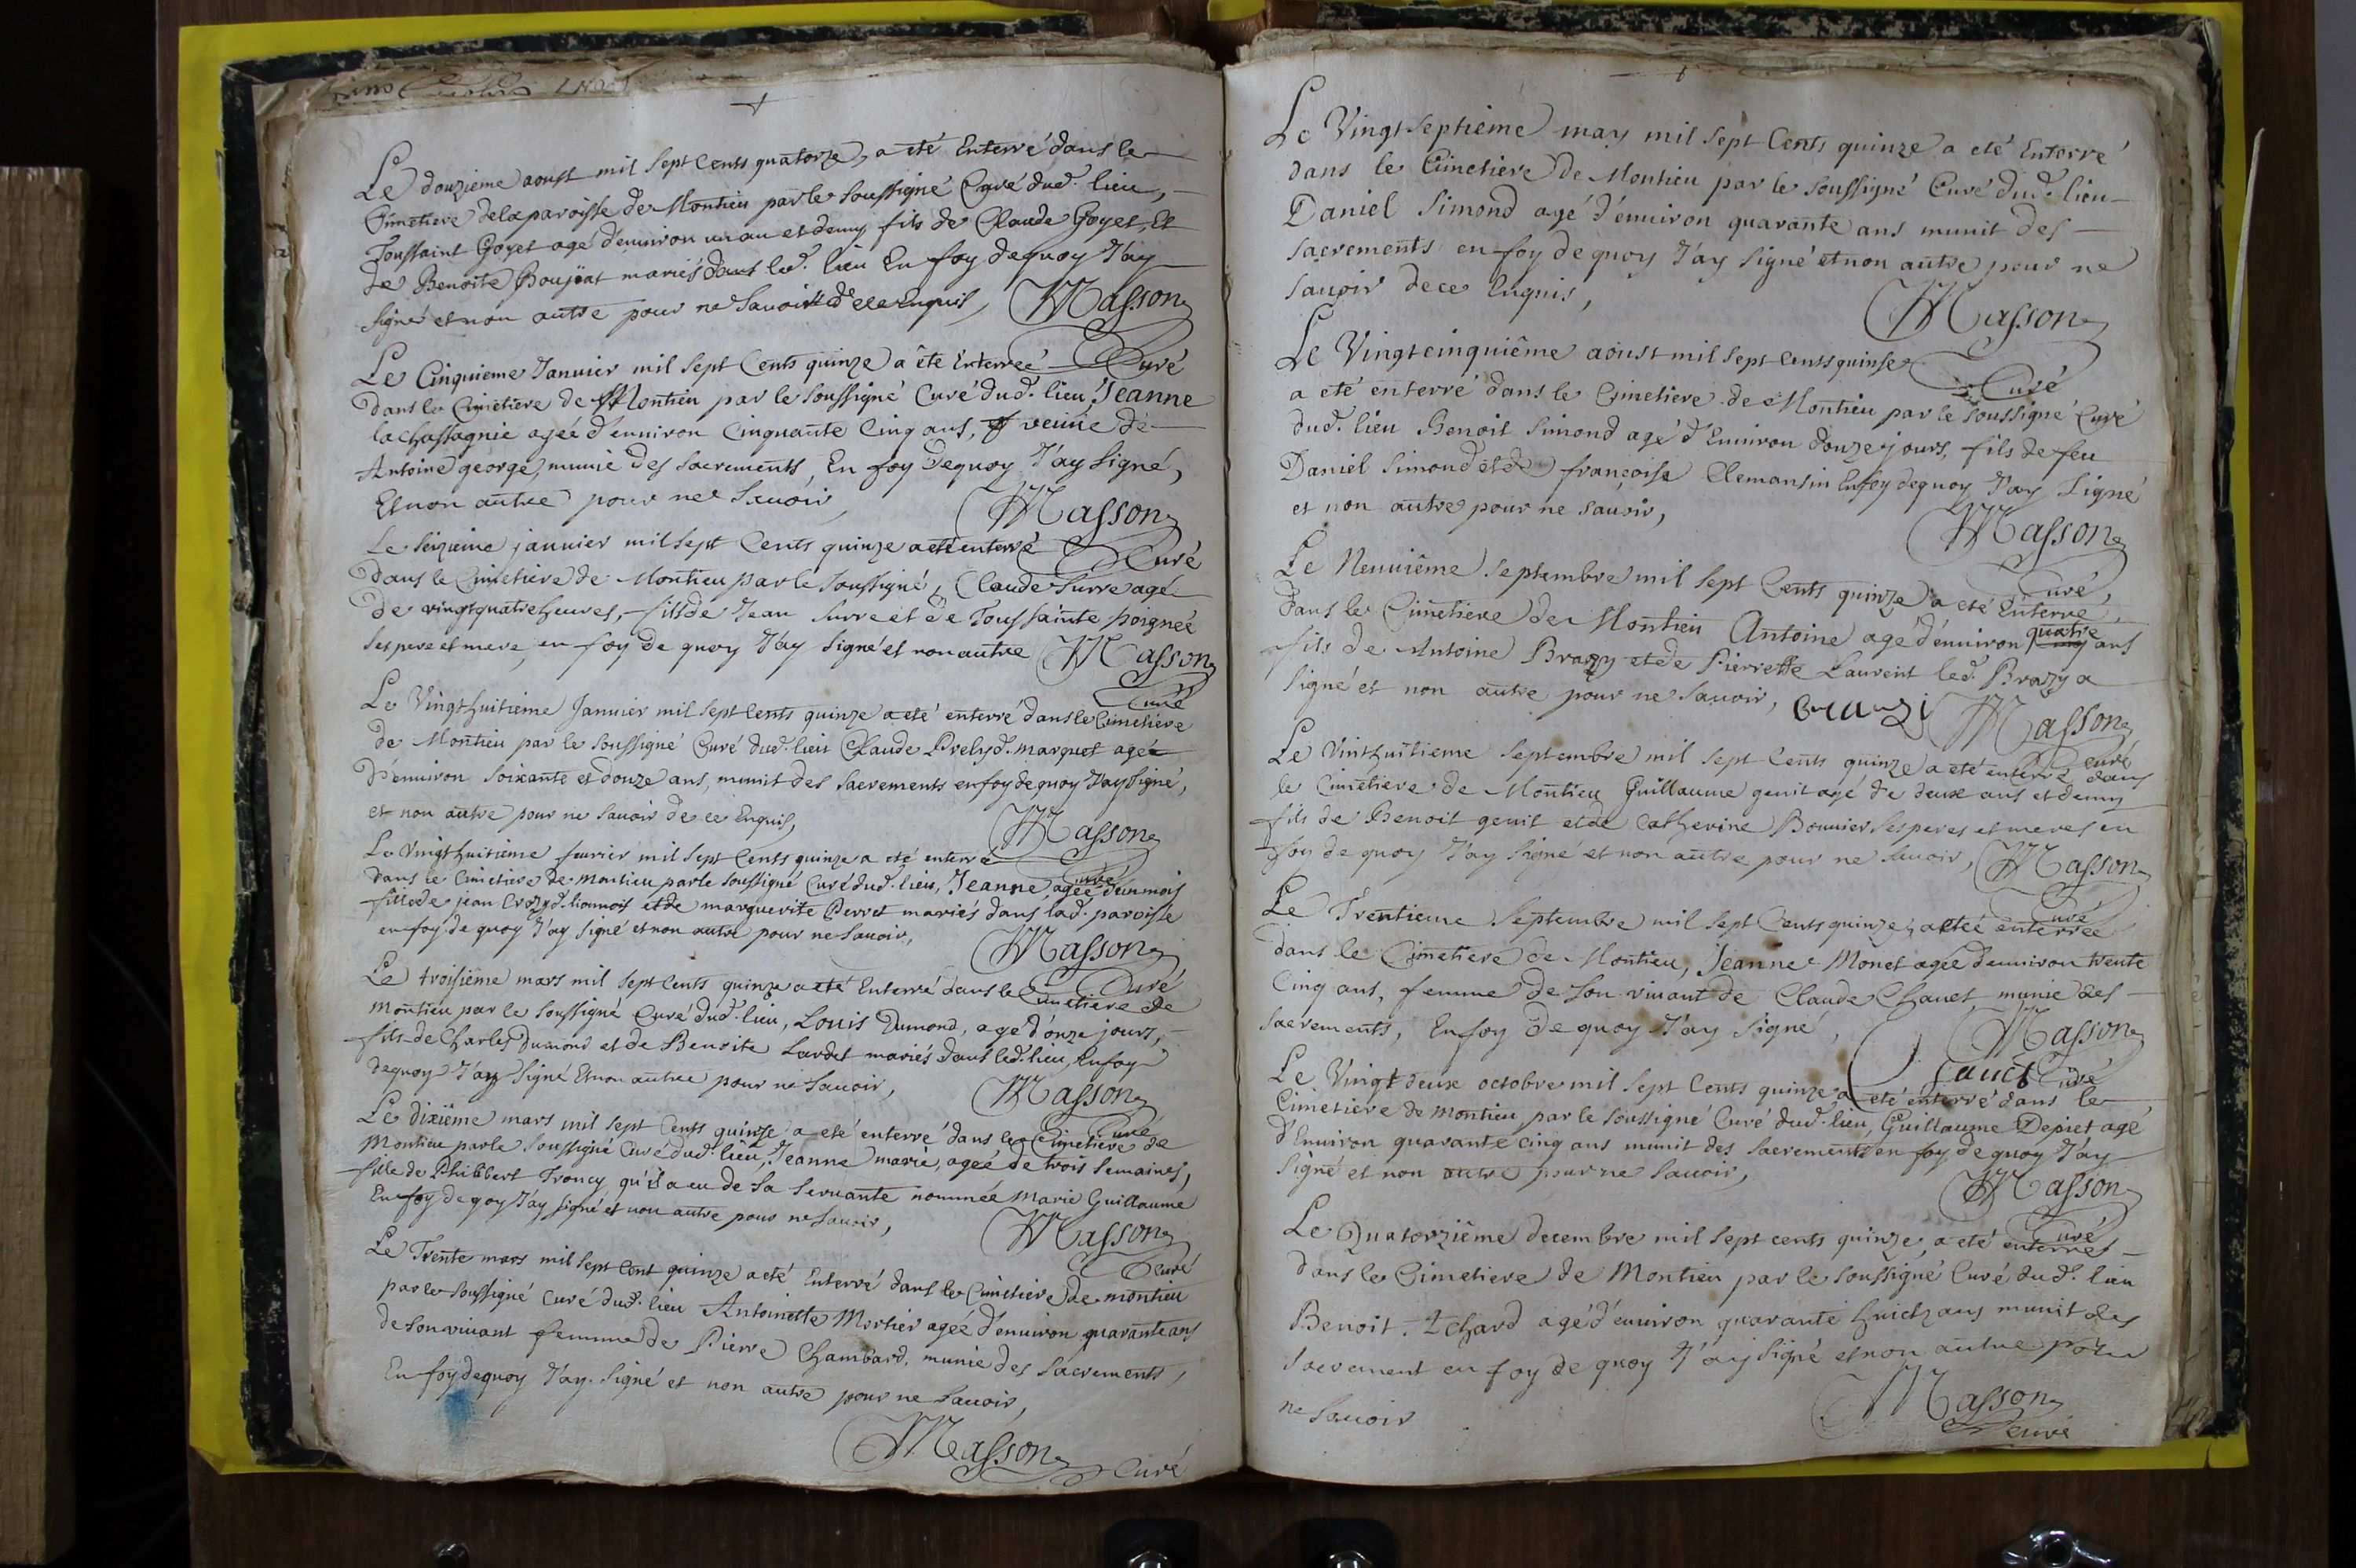 Le douzieme aoust mil sept cents quatorze, a eté Enterré dans le
Cimetiere de la paroisse de Montieu par le soussigné Curé dud. lieu,
Toussaint Goyet agé d'enuiron un an et demy fils de Claude Goyet, Et
de Benoite Boujeat mariés dans led. lieu En foy dequoy J'ay
signé et non autre pour ne sauoir de ce enquis, Masson
Curé
Le Cinquieme Januier mil sept Cents quinze a été Enterreé
dans le Cimetiere de Montieu par le soussigné Curé dud. lieu, Jeanne
lachassagnie agéé d'enuiron Cinquante Cinq ans, veuue de
Antoine george, munie des sacrements, En foy dequoy J'ay signé,
Et non autre pour ne sauoir, Masson
Curé
Le seizieme januier mil sept Cents quinze a eté enterré
dans le Cimetiere de Montieu par le soussigné, Claude Surre agé
de vingt quatre heures, fils de Jean Surre et de Toussainte poignée
ses pere et mere, en foy de quoy J'ay signé et non autre Masson
Curé
Le Vingt huitieme Januier mil sept Cents quinze a eté enterré dans le Cimetiere
de Montieu par le soussigné Curé dud. lieu Claude Prely d. marquet agé
d'enuiron soixante et douze ans, munit des sacrements en foy de quoy J'ay signé,
et non autre pour ne sauoir de ce Enquis, Masson
Curé
Le Vingt huitieme feurier mil sept Cents quinze a eté enterré
dans le Cimetiere de Montieu par le soussigné Curé dud. lieu, Jeanne, agée d'un mois
fille de jean Crozy d. lionnois et de marguerite Perret mariés dans lad. paroisse
en foy de quoy J'ay signé et non autre pour ne sauoir, Masson
Curé
Le troisiême mars mil sept Cents quinze a eté Enterré dans le Cimetiere de
Montieu par le soussigné Curé dud. lieu, Louis Dumond, agé d'onze jours,
fils de Charles Dumond et de Benoite Lardet mariés dans led. lieu, en foy
dequoy J'ay signé Et non autre pour ne sauoir, Masson
Curé
Le dixiême mars mil sept Cents quinze a eté enterré dans le Cimetiere de
Montieu par le soussigné Curé dud. lieu, Jeanne marie, ageé de trois semaines,
fille de Philibert Troncy qu'il a eu de sa seruante nommée Marie Guillaume
En foy de qoy J'ay signé et non autre pour ne sauoir, Masson
Curé
Le Trente mars mil sept Cent quinze a eté Enterré dans le Cimetiere de montieu
par le soussigné Curé dud. lieu Antoinette Mortier ageé d'enuiron quarante ans
de son viuant femme de Pierre Chambard, munie des sacrements,
En foy dequoy J'ay signé et non autre pour ne sauoir,
Masson Curé
Le Vingt septiême may mil sept Cents quinze a eté Enterré
dans le Cimetiere de Montieu par le soussigné Curé dud. lieu
Daniel Simond agé d'enuiron quarante ans munit des
sacrements en foy de quoy J'ay signé et non autre pour ne
sauoir de ce Enquis, Masson
Curé
Le Vingt cinquiême aoust mil sept Cents quinse
a eté enterré dans le Cimetiere de Montieu par le soussigné Curé
dud. lieu Benoit Simond agé d'Enuiron douze jours, fils de feu
Daniel Simond et de françoise Clemansin En foy dequoy J'ay signé
et non autre pour ne sauoir, Masson
Curé,
Le Neuuiême septembre mil sept Cents quinze a eté Enterré,
dans le Cimetiere de Montieu Antoine agé d'enuiron quatre ans
fils de Antoine Brazy et de Pierrette Laurent led. Brazy a
signé et non autre pour ne sauoir, Brazi Masson
Curé
Le Vint huitieme septembre mil sept Cents quinze a eté enterré dans
le Cimetiere de Montieu Guillaume genit agé de deux ans et demy
fils de Benoit genit et de Catherine Bouuier ses peres et meres en
foy de quoy J'ay signé et non autre pour ne sauoir, Masson
Curé
Le Trentieme septembre mil sept Cents quinze, a eteé enterrée
dans le Cimetiere de Montieu, Jeanne Monet ageé d'enuiron trente
Cinq ans, femme de son viuant de Claude Chauet munie des
sacrements, En foy de quoy J'ay signé, Masson
Curé
Le Vingt deux octobre mil sept Cents quinze a eté enterré dans le
Cimetiere de Montieu par le soussigné Curé dud. lieu, Guillaume Depiet agé
d'Enuiron quarante cinq ans munit des sacrements en foy de quoy J'ay
signé et non autre pour ne sauoir, Masson
Curé
Le Quatorziême decembre mil sept cents quinze, a eté enterré
dans le Cimetiere de Montieu par le soussigné Curé dud. lieu
Benoit agé d'enuiron quarante huict ans munit des
sacrement en foy de quoy J'ay signé et non autre pour
ne sauoir Masson
curé